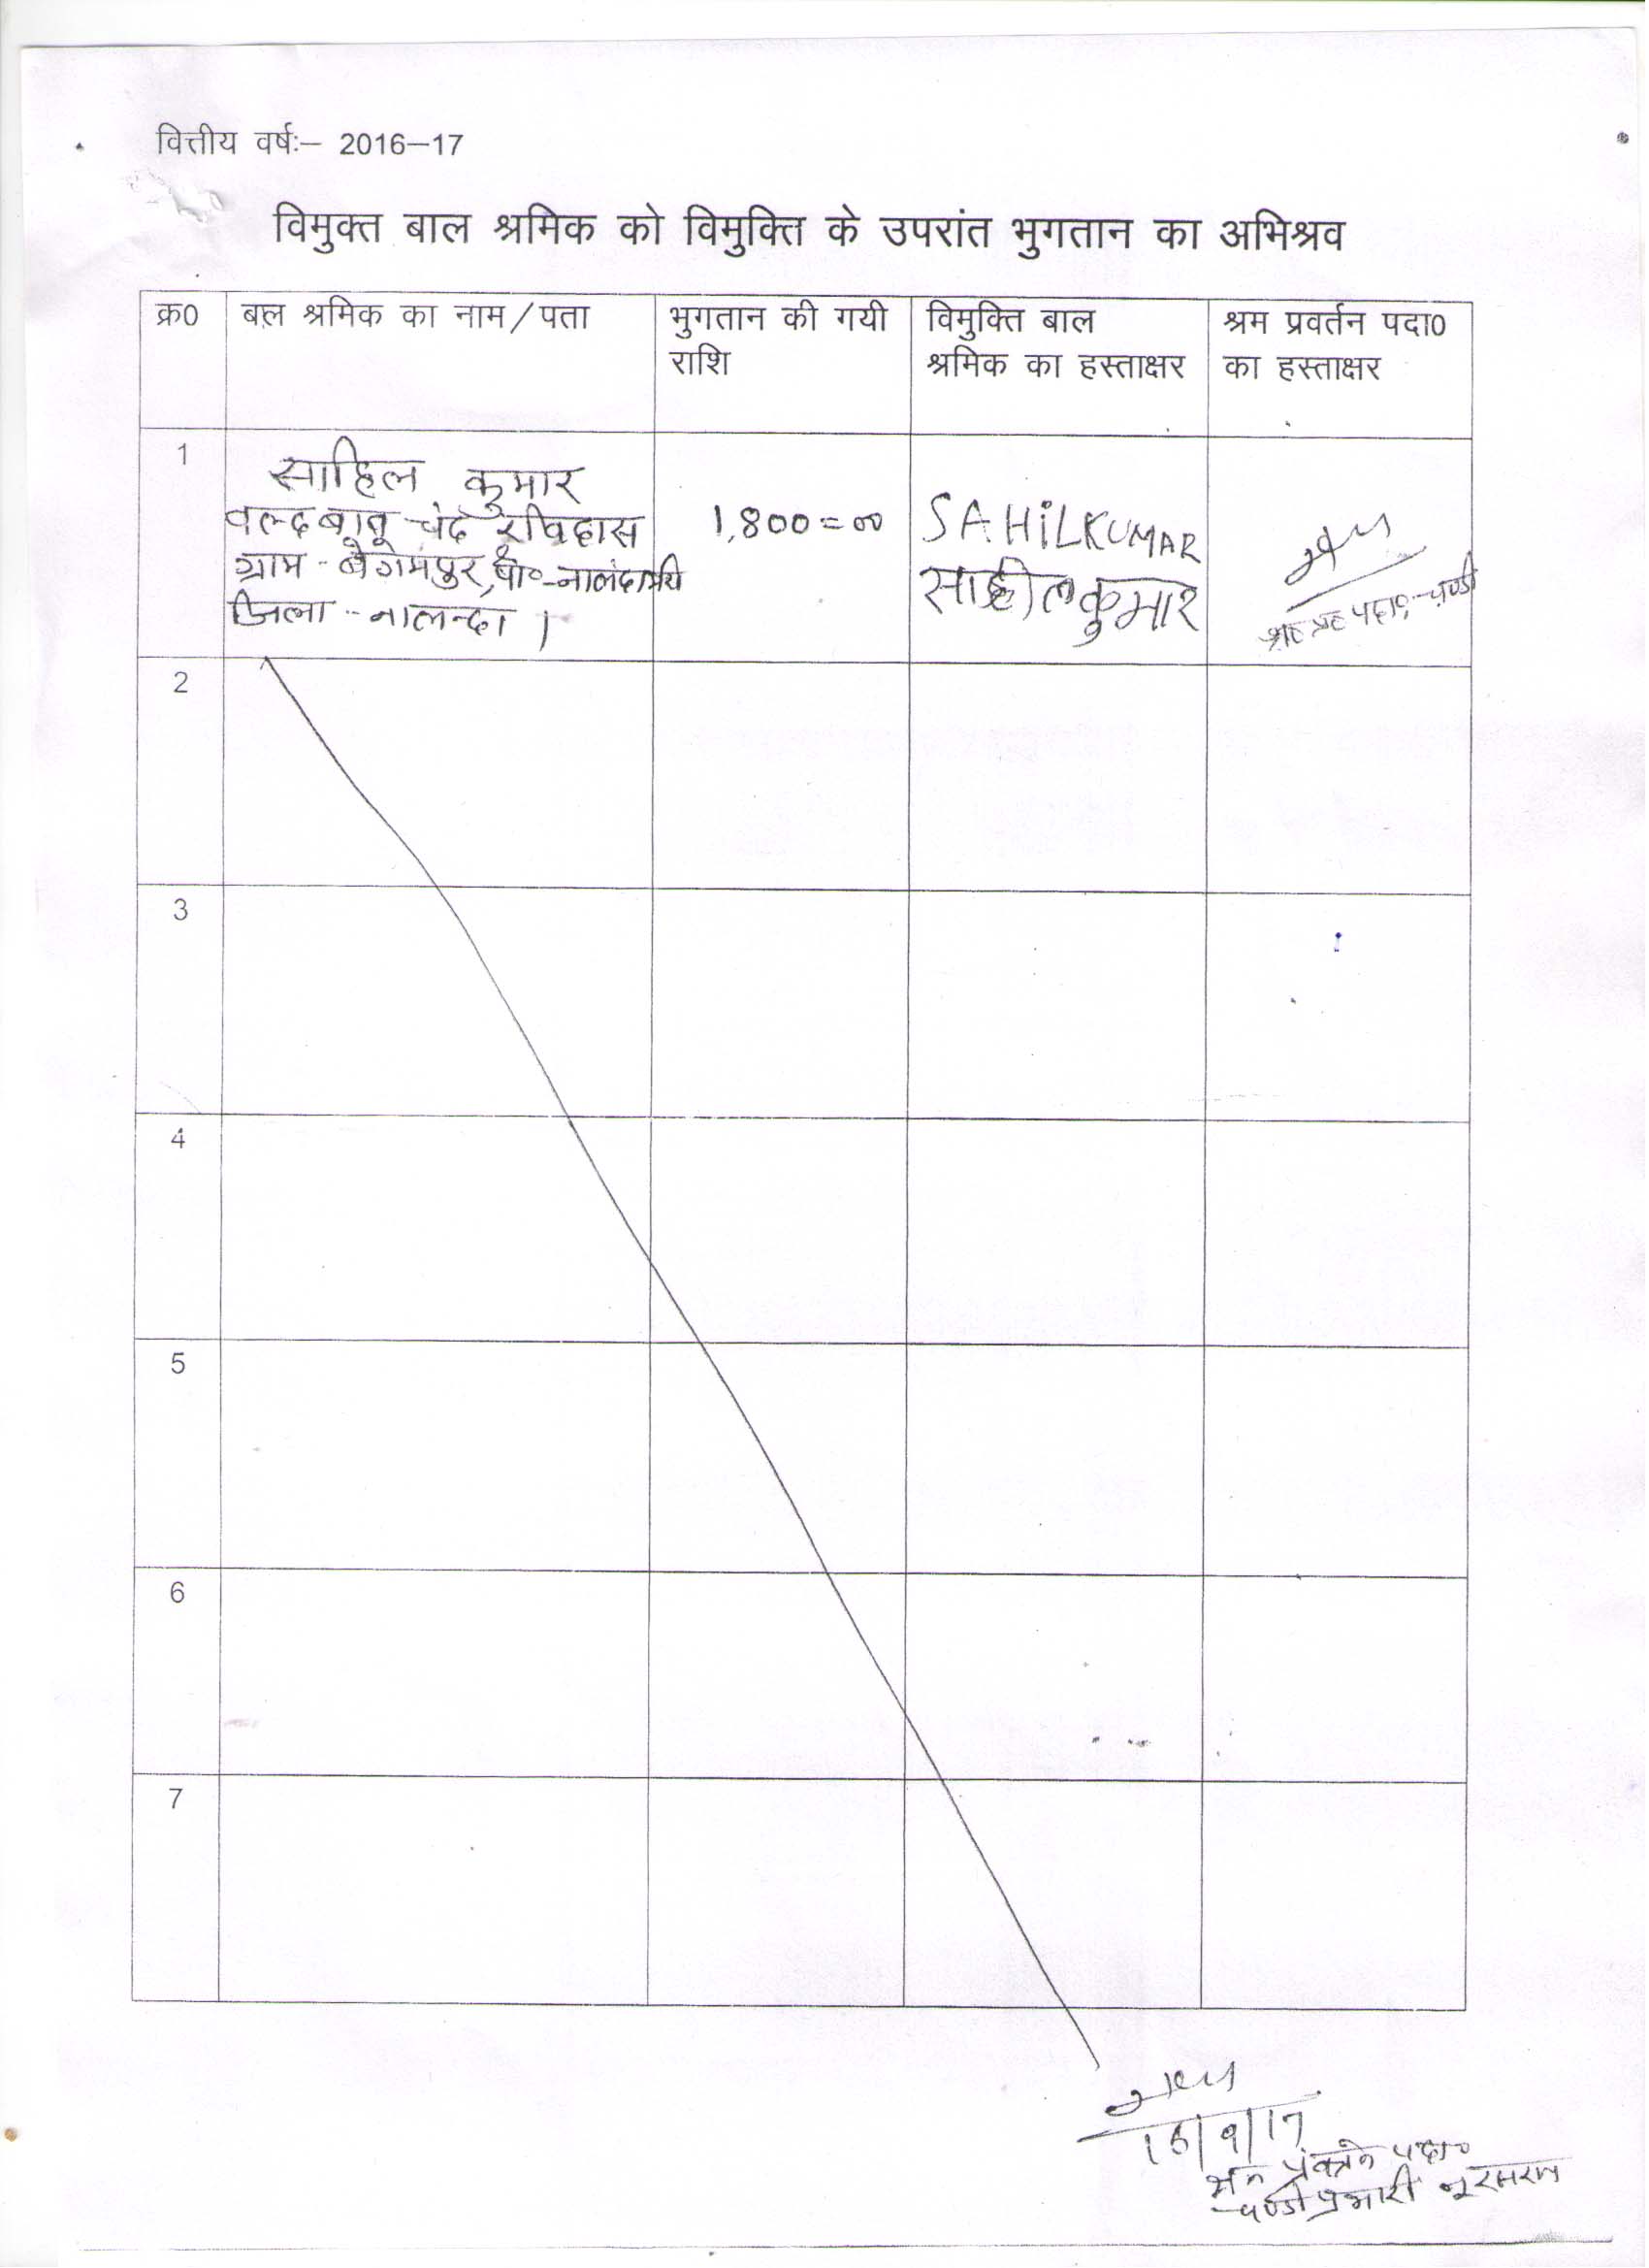 वित्तीय वर्षः– 2016–17
विमुक्त बाल श्रमिक को विमुक्ति के उपरांत भुगतान का अभिश्रव
क्र0 बाल श्रमिक का नाम/पता भुगतान की गयी राशि विमुक्ति बाल श्रमिक का हस्ताक्षर श्रम प्रवर्तन पदा0 का हस्ताक्षर
1
साहिल कुमार
वल्द बाबू चंद रविदास
ग्राम - बेगमपुर,
जिला - नालन्दा ।
1,800=00
SAHiLKUMAR
साहील कुमार
पदा०-चण्डी
2
3
4
5
6
7
पदा०
चण्डी प्रभारी नूरसराय